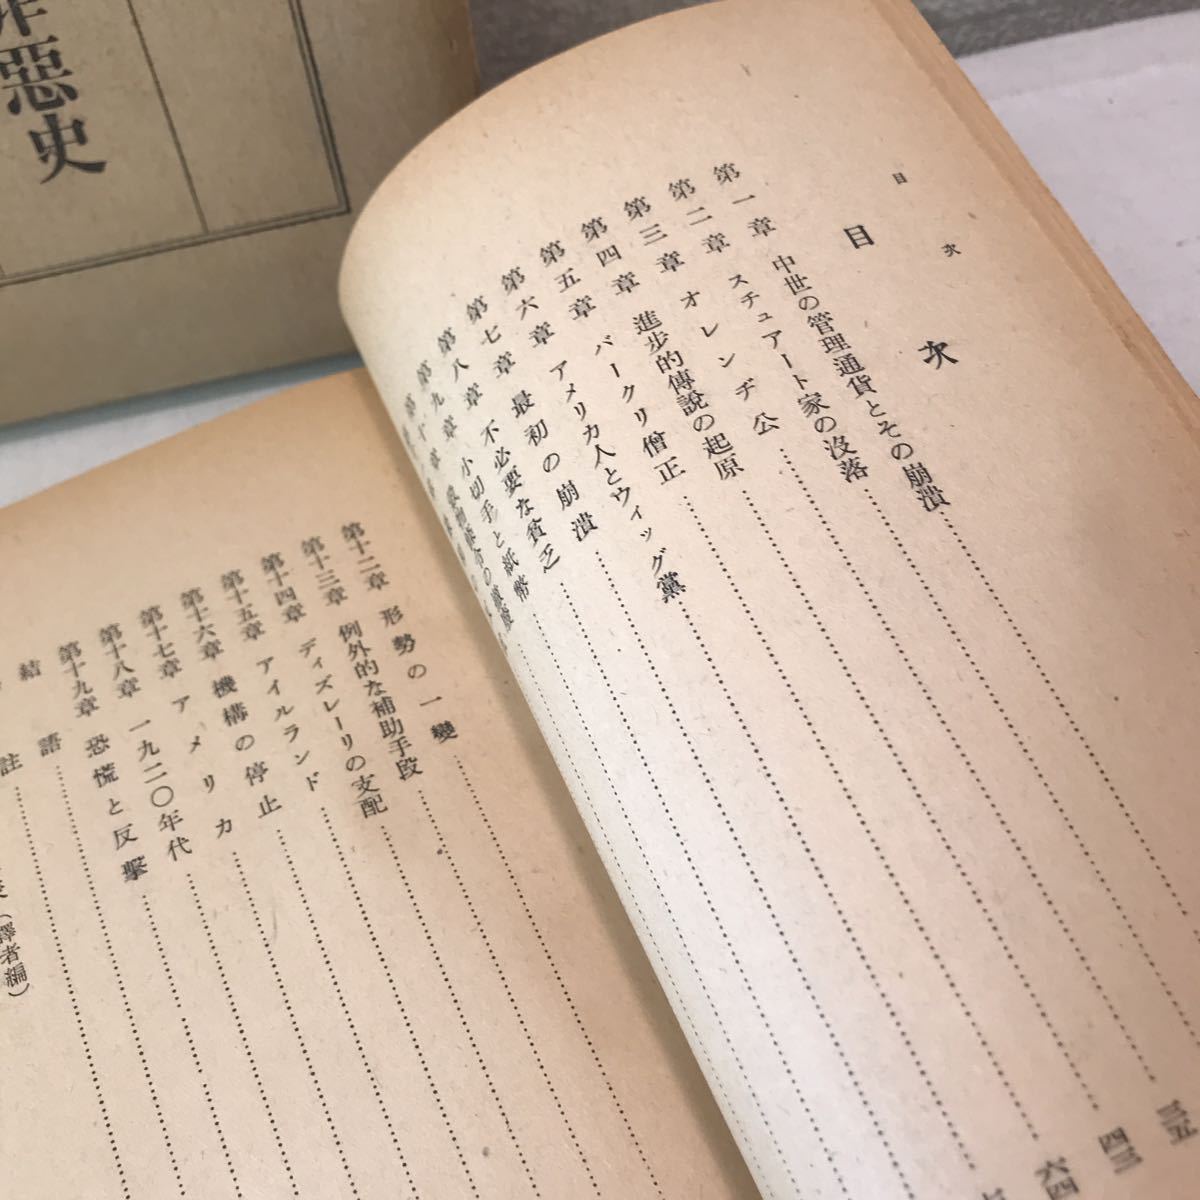 惡史
目次
目次
第一章 中世の管理通貨とその崩潰
第二章 スチュアート家の沒落
第三章 オレンヂ公
第四章 進歩的傳說の起原
第五章 バークリ僧正
第六章 アメリカ人とウィッグ黨
第七章 最初の崩潰
第八章 不必要な貧乏
第九章 小切手と紙幣
第十章
三五
四三
六四
第十二章 形勢の一變
第十三章 例外的な補助手段
第十四章 ディズレーリの支配
第十五章 アイルランド
第十六章 機構の停止
第十七章 アメリカ
第十八章 一九二〇年代
第十九章 恐慌と反擊
結語
註
(譯者編)